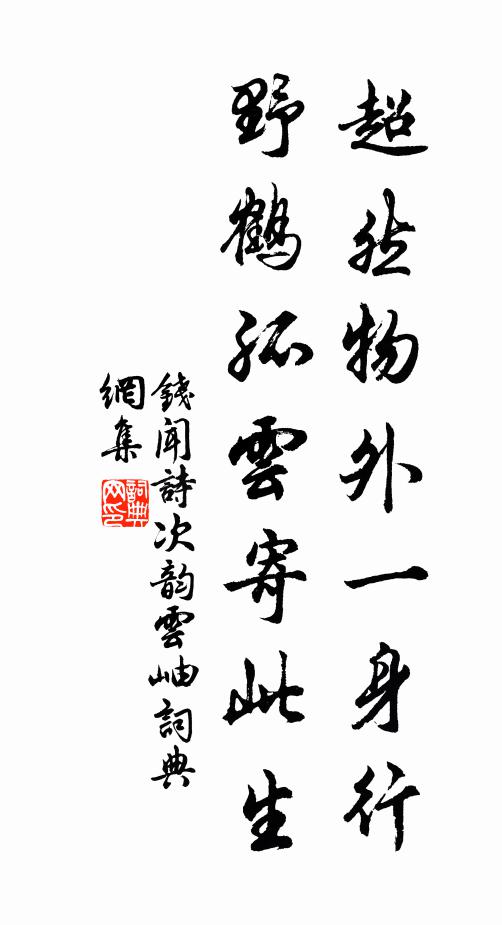 超然物外一身行
野鶴孤雲寄此生
錢聞詩次韵雲岫詞典
網集
詞典
网印